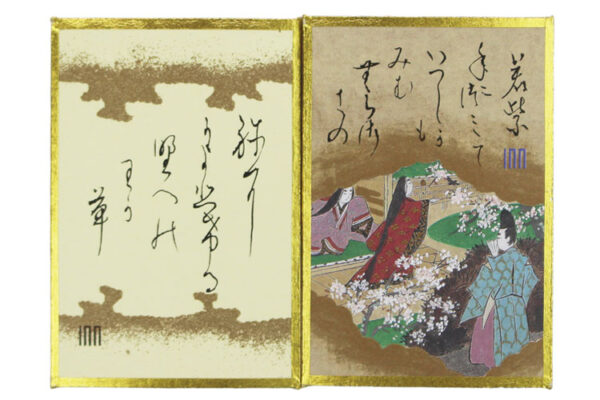 若紫
手につみて
いつしかも
みむ
むらさ
きの
ねに
かよひける
野へ乃
わか
草